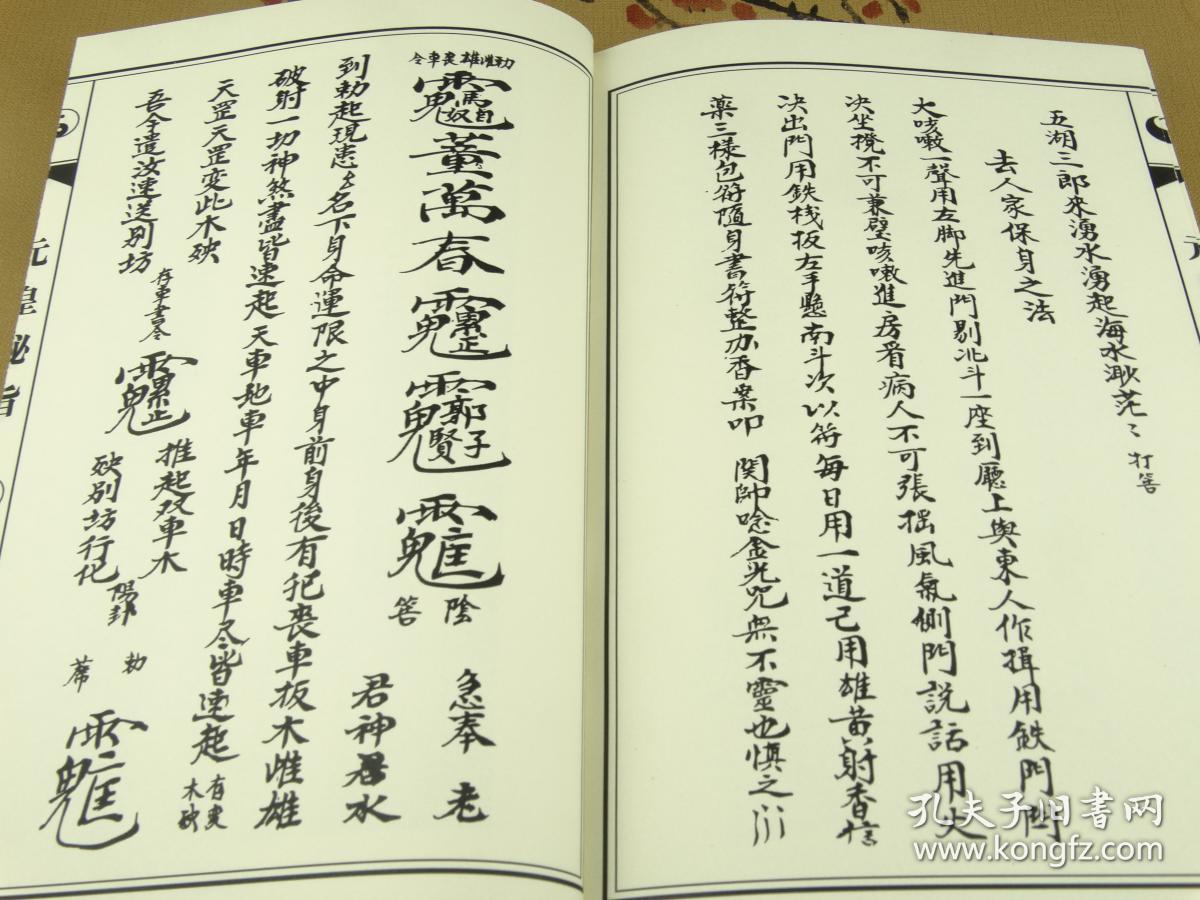 五湖三郎來湧水湧起海水渺茫〻打筶
去人家保身之法
大咳嗽一聲用左脚先進門剔北斗一座到廳上與東人作揖用鉄門閂
决坐櫈不可兼壁咳嗽進房看病人不可張摇風氣側門説話用火
决出門用鉄板左手懸南斗次以符每日用一道已用雄黄射香信
薬三様包符隨身書符整办香案叩 関帥唸金光咒無不靈也慎之
勅雌雄喪車令
董萬春
陰筶
急奉老
君神水
到勅起現患名下身命運限之中身前身後有犯喪車板木雌雄
破射一切神煞盡皆速起天車地車年月日時車尽皆速起
天罡天罡变此木殃
吾今遣汝速送别坊
推起双車木
殃别坊行化
陽卦
勅
元皇秘旨
孔夫子旧書网
www.kongfz.com